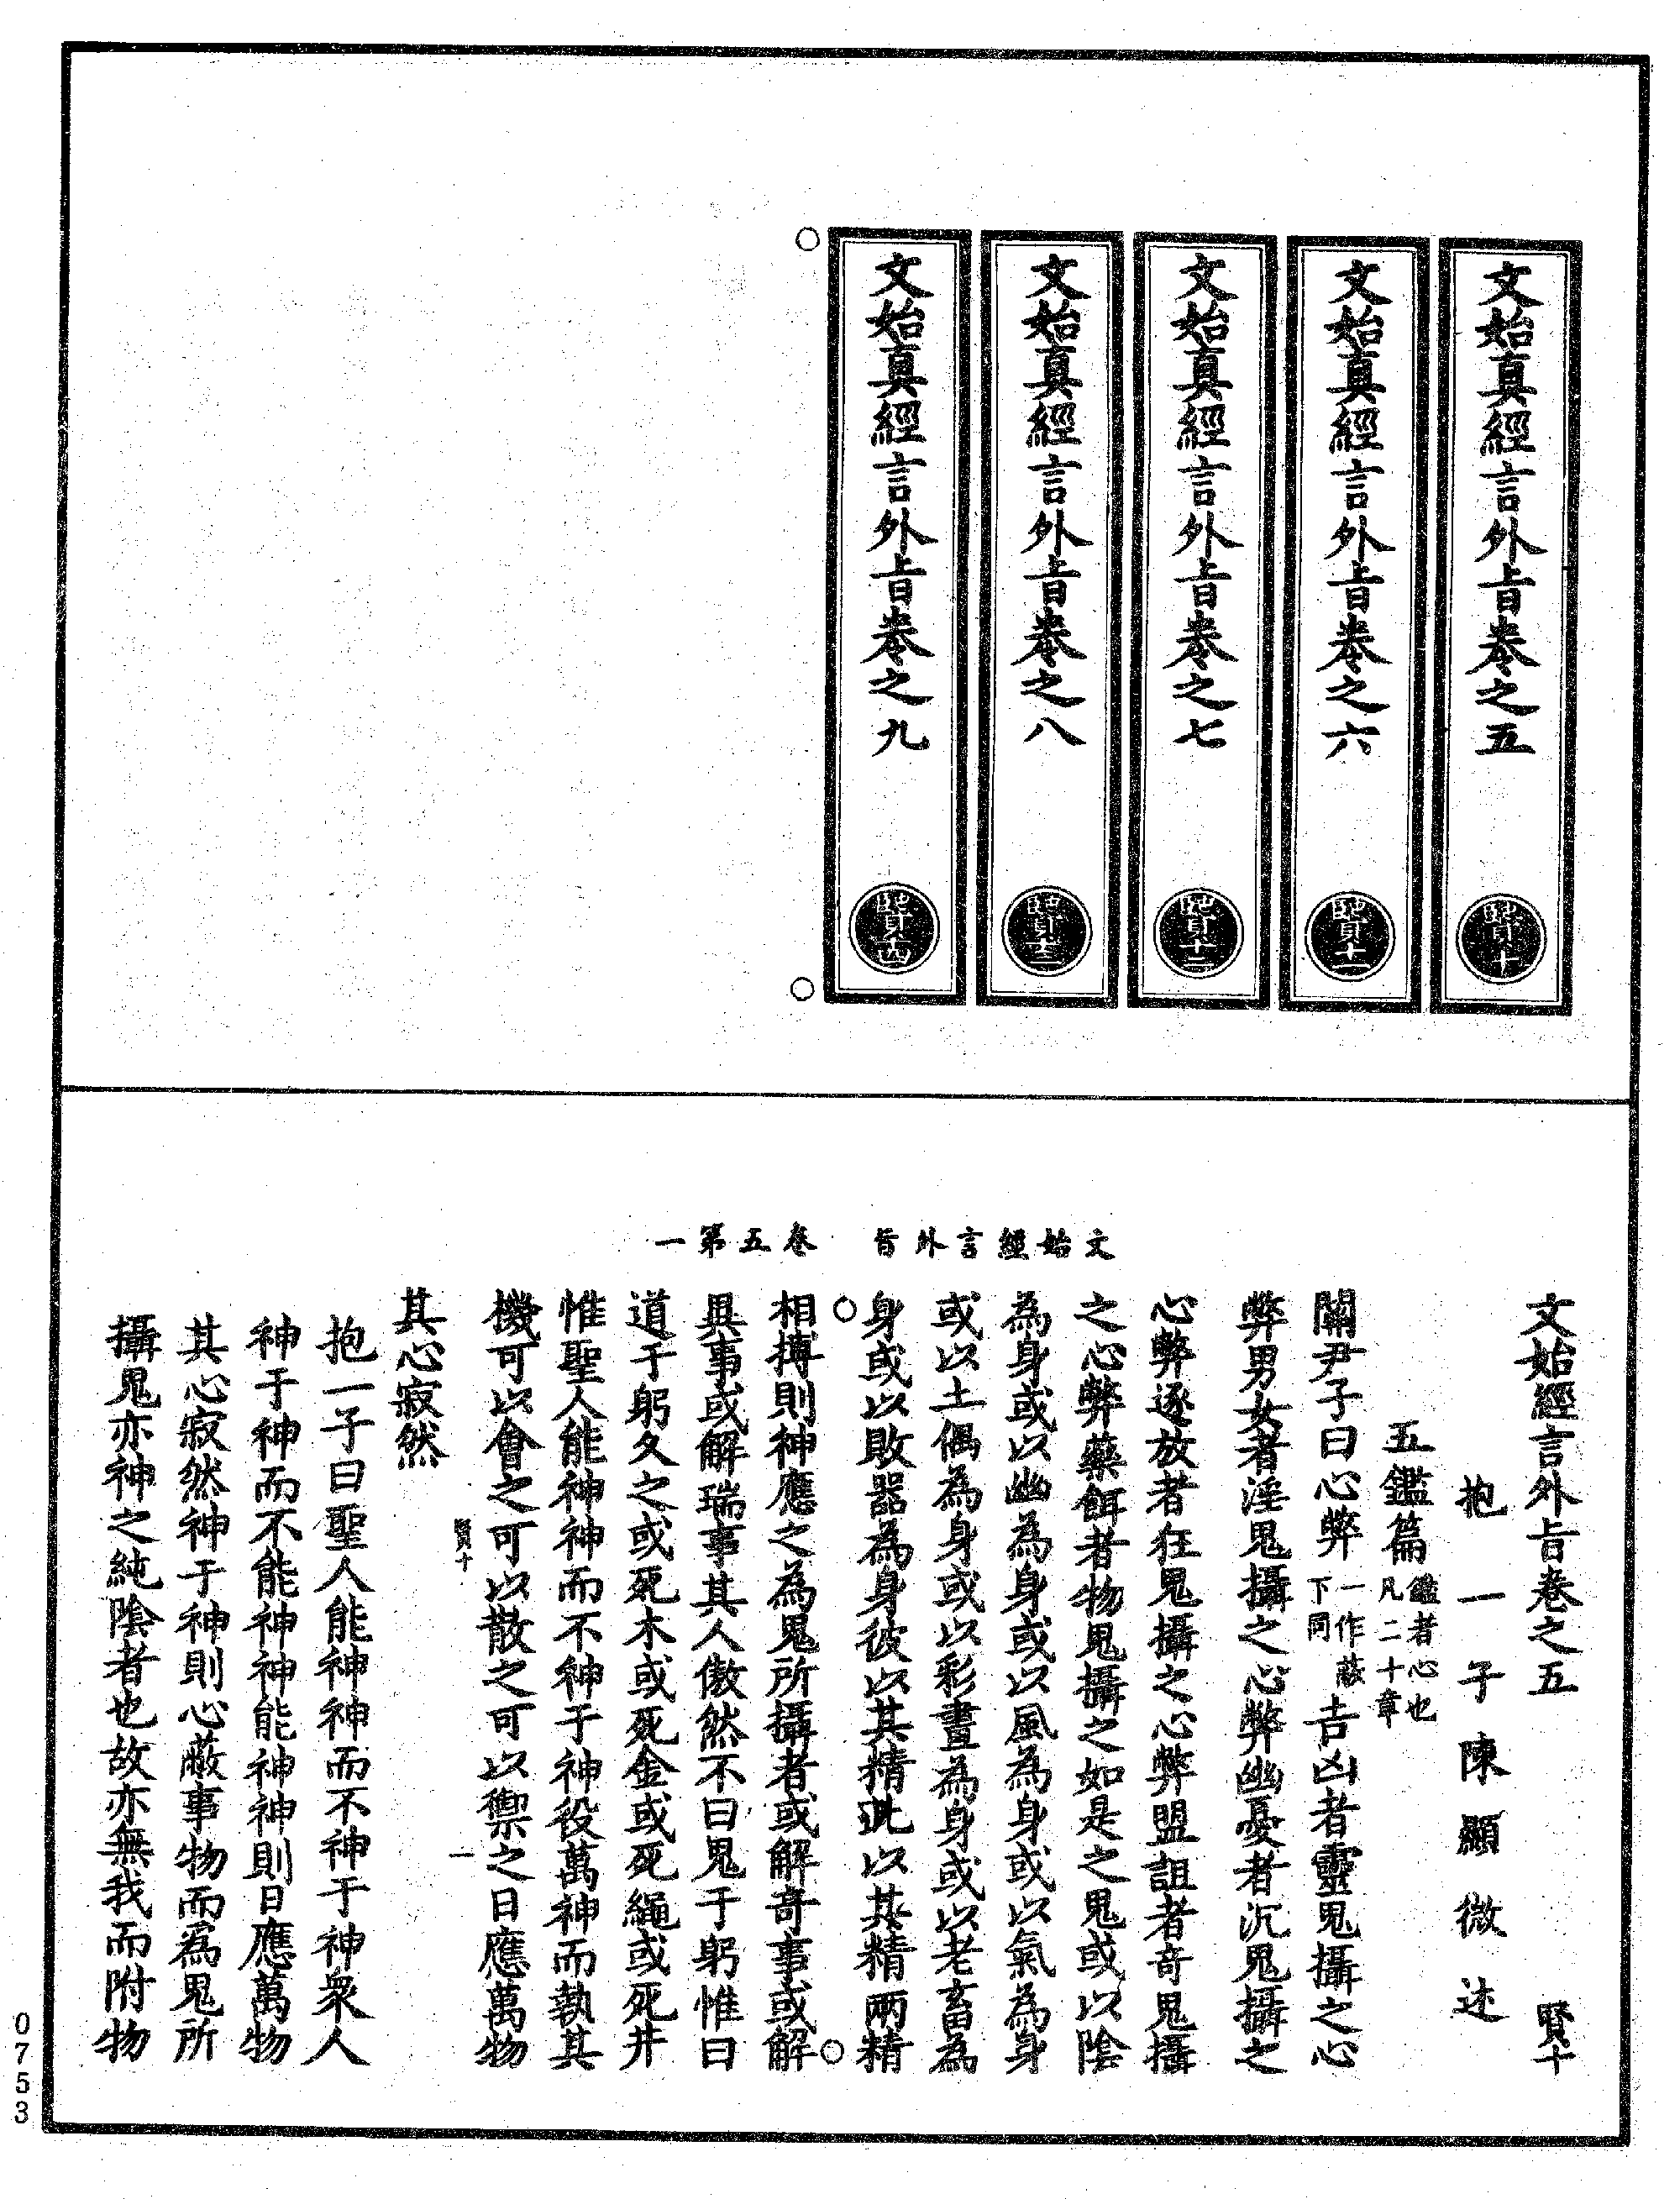 文始真經言外旨卷之五
賢十
文始真經言外旨卷之六
賢十一
文始真經言外旨卷之七
賢十二
文始真經言外旨卷之八
賢十三
文始真經言外旨卷之九
賢十四
文始經言外旨　卷五第一
文始經言外旨卷之五　賢十
抱一子陳顯微述
五鑑篇鑑者心也凡二十章
關尹子曰心弊一作蔽下同吉凶者靈鬼攝之心
弊男女者淫鬼攝之心弊幽憂者沉鬼攝之
心弊逐放者狂鬼攝之心弊盟詛者奇鬼攝
之心弊藥餌者物鬼攝之如是之鬼或以陰
為身或以幽為身或以風為身或以氣為身
或以土偶為身或以彩畫為身或以老畜為
身或以敗器為身彼以其精此以其精兩精
相搏則神應之為鬼所攝者或解奇事或解
異事或解瑞事其人傲然不曰鬼于躬惟曰
道于躬久之或死木或死金或死繩或死井
惟聖人能神神而不神于神役萬神而執其
機可以會之可以散之可以禦之日應萬物
賢十　一
其心寂然
抱一子曰聖人能神神而不神于神衆人
神于神而不能神神能神神則日應萬物
其心寂然神于神則心蔽事物而為鬼所
攝鬼亦神之純陰者也故亦無我而附物
0753